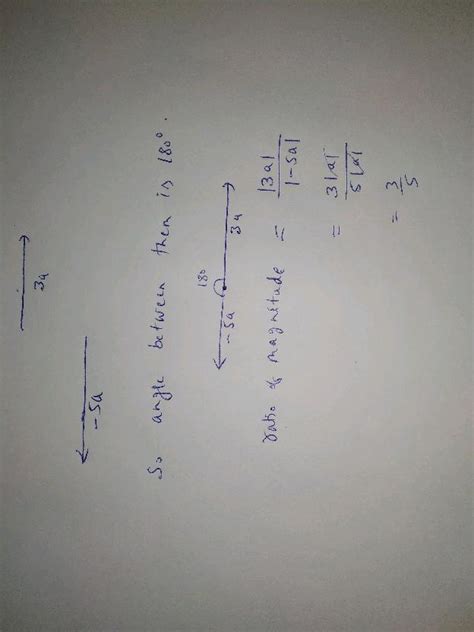 3a
-5a
So angle between them is 180°.
180
-5a 3a
ratio of magnitude = |3a| / |-5a|
= 3|a| / 5|a|
= 3/5